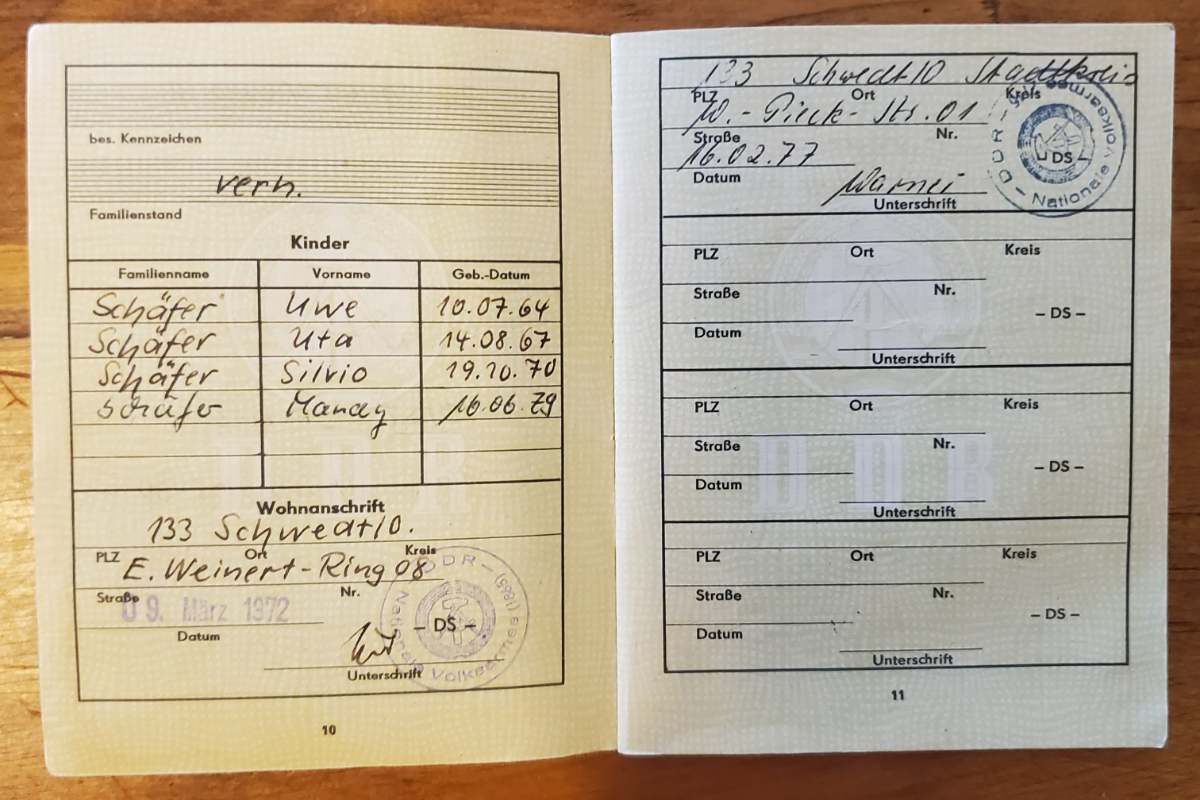 bes. Kennzeichen
verh.
Familienstand
Kinder
Familienname Vorname Geb.-Datum
Schäfer Uwe 10.07.64
Schäfer Uta 14.08.67
Schäfer Silvio 19.10.70
Schäfer Mandy 16.06.79
Wohnanschrift
133 Schwedt/O.
PLZ Ort Kreis
E. Weinert-Ring 08
Straße Nr.
09. März 1972
Datum
Unterschrift
DDR – Nationale Volksarmee
– DS –
10
133 Schwedt/O Stadtkreis
PLZ Ort Kreis
W.-Pieck-Str. 01
Straße Nr.
16.02.77
Datum
Unterschrift
DDR – Nationale Volksarmee
DS
PLZ Ort Kreis
Straße Nr.
– DS –
Datum
Unterschrift
PLZ Ort Kreis
Straße Nr.
– DS –
Datum
Unterschrift
PLZ Ort Kreis
Straße Nr.
– DS –
Datum
Unterschrift
11
DDR
DDR